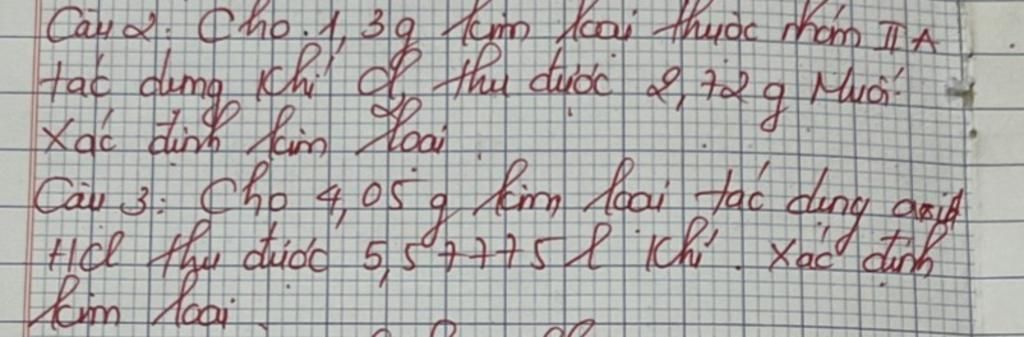 Câu 2: Cho 1,3g kim loại thuộc nhóm IIA
tác dụng khí Cl2 thu được 2,72 g Muối
Xác định kim loại.
Câu 3: Cho 4,05 g kim loại tác dụng axit
HCl thu được 5,57775 l khí. Xác định
kim loại.